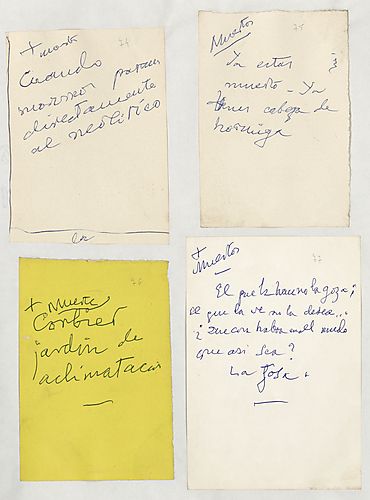 + muerte
74
Cuando
morror pasan
directamente
al neolitico
Muertos
75
Ya estas
muerto - Ya
tenes cabeza de
hormiga
76
+ Muerte
jardin de
aclimatacion
+
Muertos
77
El que la hace no la goza;
el que la ve no la desea...
¿ habra en el mundo
que asi sea?
La fosa.